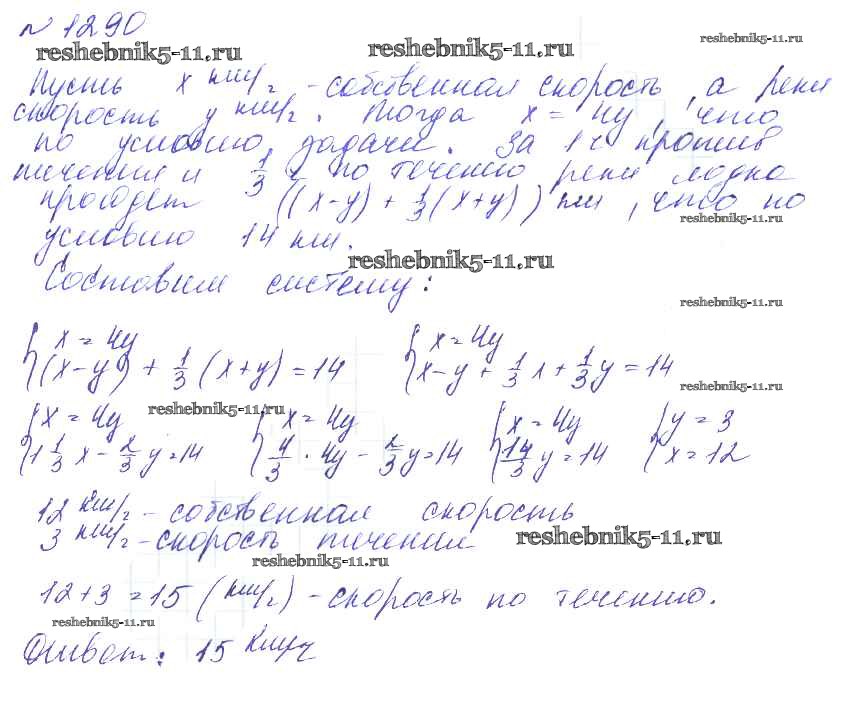 № 1290
reshebnik5-11.ru reshebnik5-11.ru reshebnik5-11.ru
Пусть x км/ч - собственная скорость, а реки
скорость y км/ч. Тогда x = 4y, что
по условию задачи. За 1 ч против
течения и 1/3 ч по течению реки лодка
пройдет ((x-y) + 1/3(x+y)) км, что по
reshebnik5-11.ru
условию 14 км.
reshebnik5-11.ru
Составим систему:
reshebnik5-11.ru
{x = 4y {x = 4y
{(x-y) + 1/3 (x+y) = 14 {x-y + 1/3 x + 1/3 y = 14
reshebnik5-11.ru
reshebnik5-11.ru
{x = 4y {x = 4y {x = 4y {y = 3
{1 1/3 x - 2/3 y = 14 {4/3 · 4y - 2/3 y = 14 {14/3 y = 14 {x = 12
12 км/ч - собственная скорость
3 км/ч - скорость течения
reshebnik5-11.ru
reshebnik5-11.ru
12 + 3 = 15 (км/ч) - скорость по течению.
reshebnik5-11.ru
Ответ: 15 км/ч